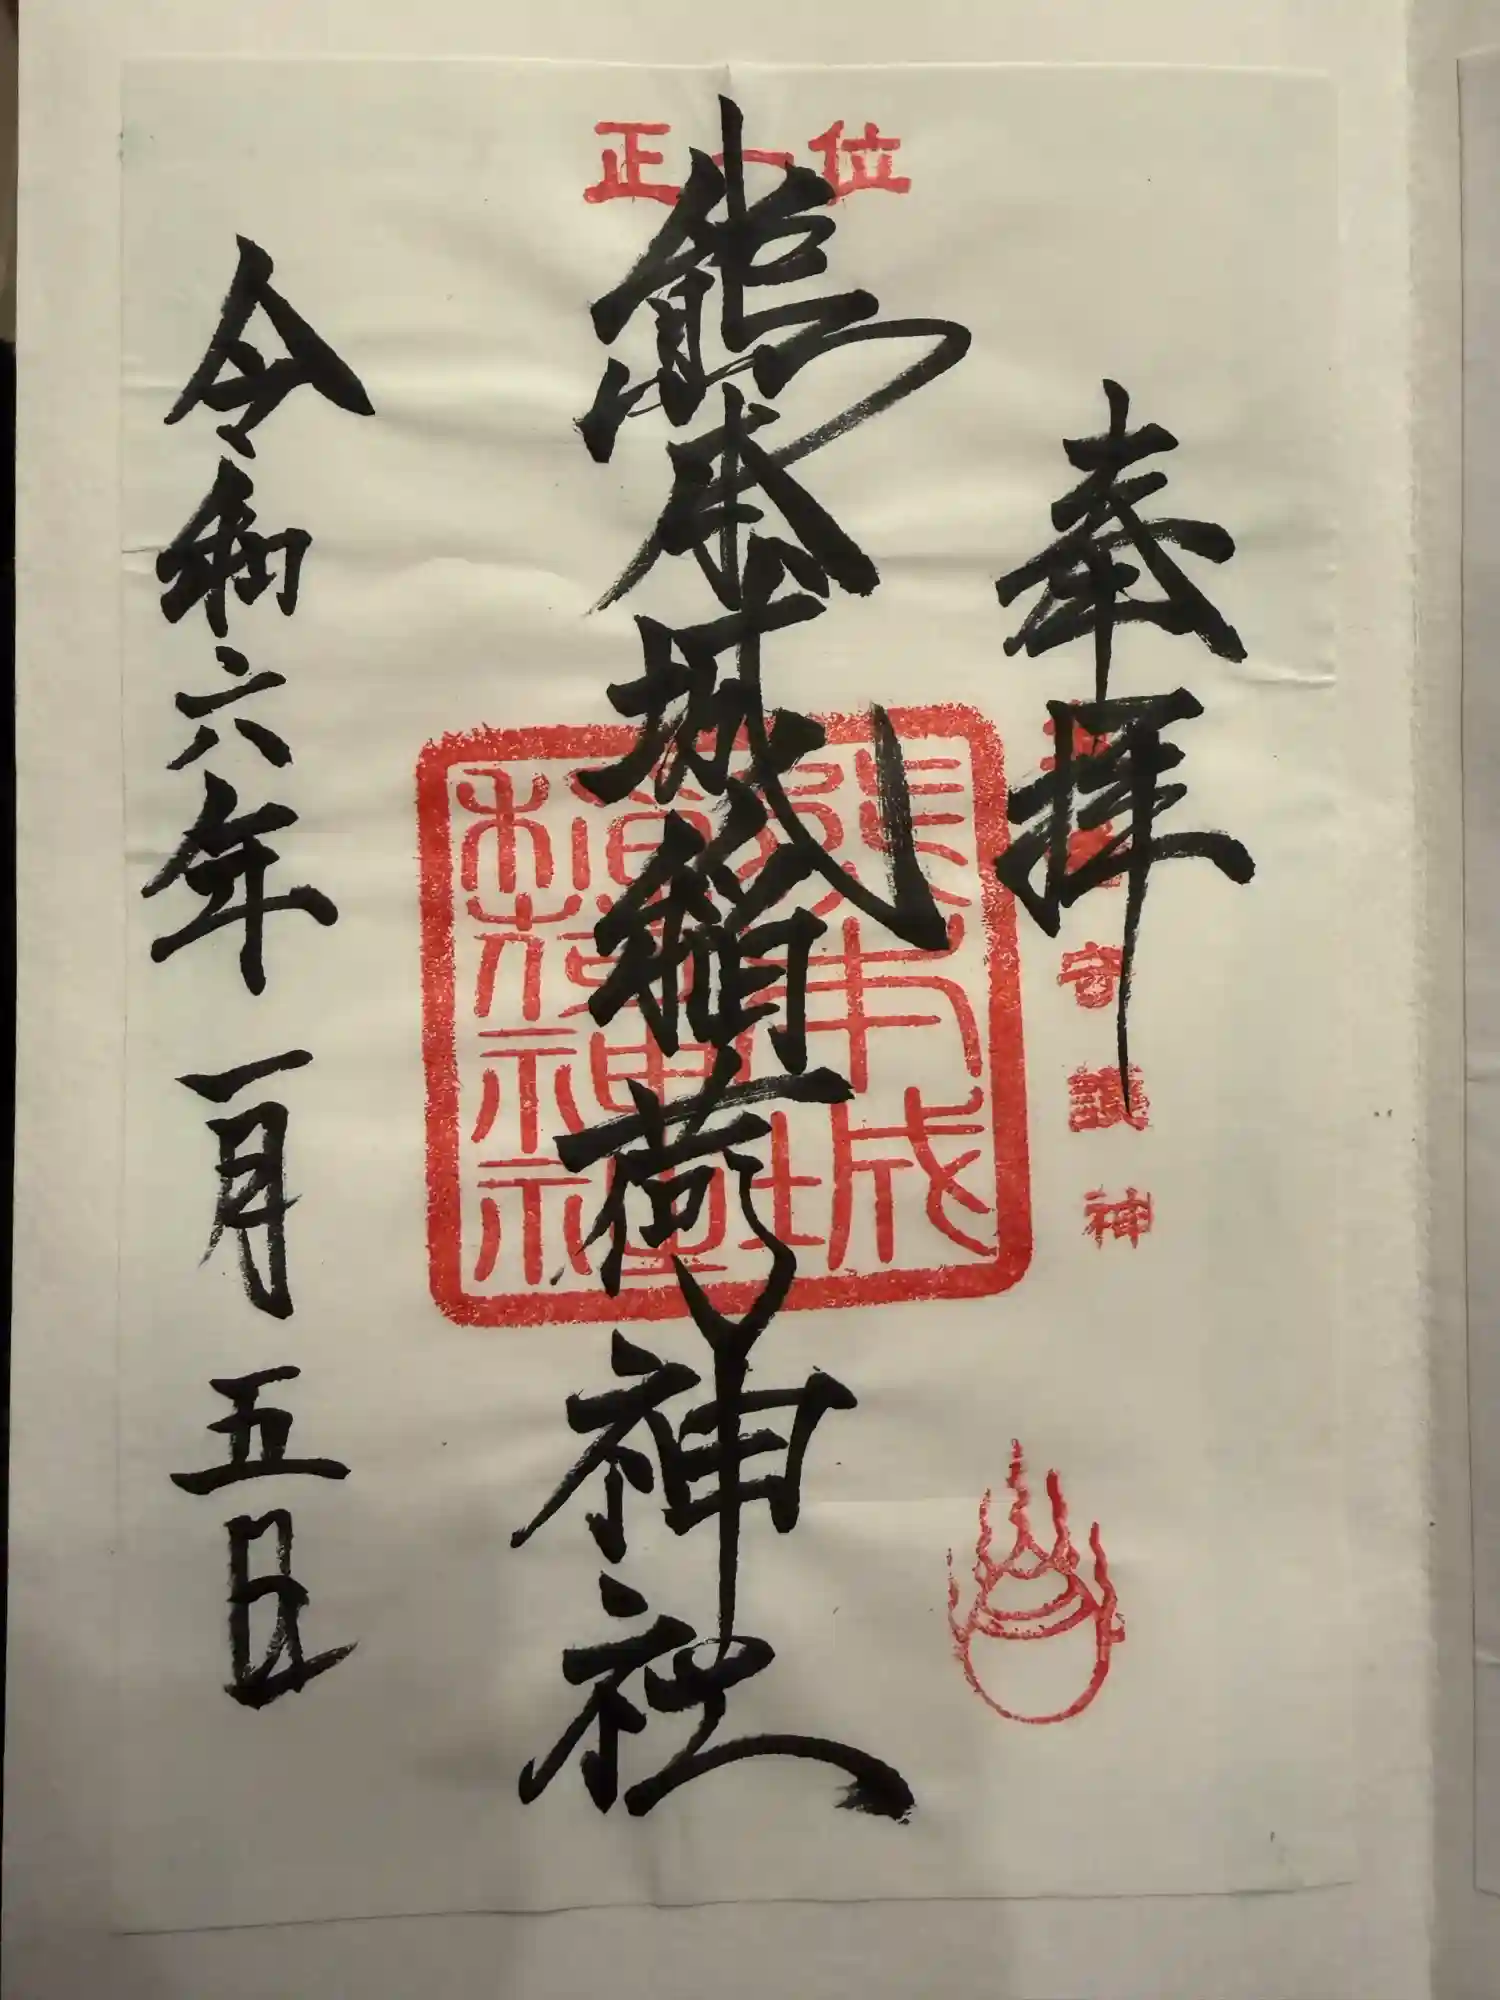 正一位
奉拝
守護神
熊本城稲荷神社
熊本城
稲荷神社
令和六年一月五日